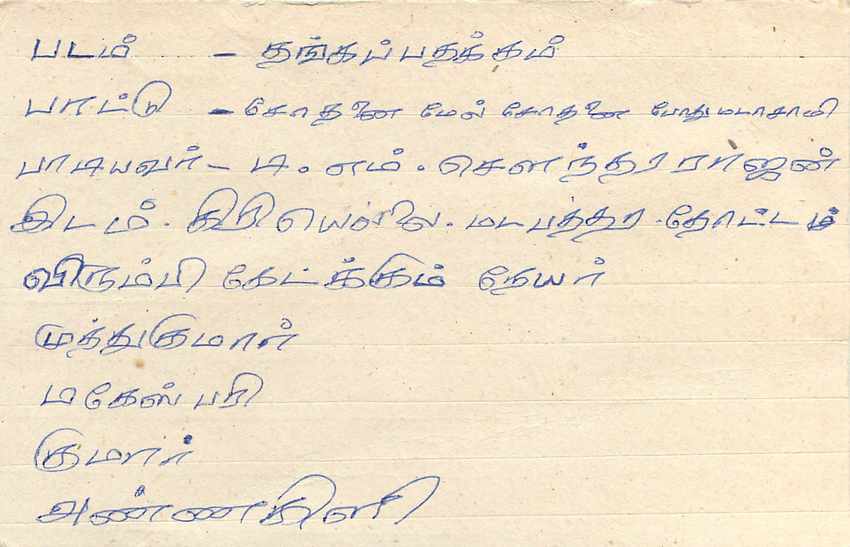 படம் - தங்கப்பதக்கம்
பாட்டு - சோதனை மேல் சோதனை போதுமடாசாமி
பாடியவர் - டி. எம். சௌந்தரராஜன்
இடம். தோட்டம்
விரும்பி கேட்க்கும் நேயர்
முத்துகுமார்
மகேஸ்பரி
குமார்
அன்ணகிளி